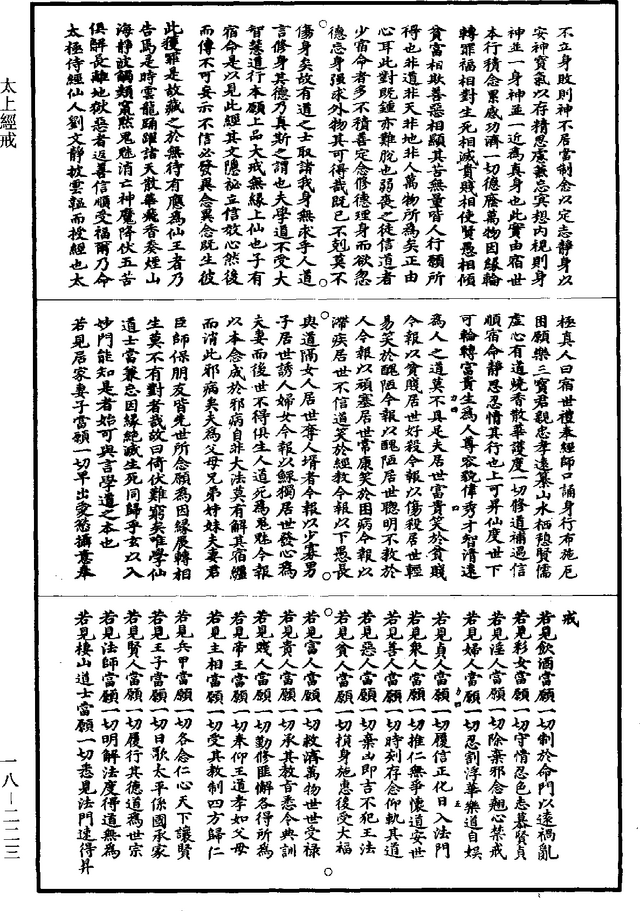 不立身敗則神不居當制念以定志靜身以
安神寶氣以存精思慮兼忘冥想內視則身
神並一身神並一近為真身也此實由宿世
本行積念累感功濟一切德蔭萬物因緣輪
轉罪福相對生死相滅貴賤相使賢愚相傾
貧富相欺善惡相顯其苦無量皆人行願所
得也非道非天非地非人萬物所為矣正由
心耳此對既鍾亦難脫也弱喪之徒信道者
少宿命者多不積善定念修德理身而欲忽
德忘身強求外物其可得哉既已不剋莫不
傷身矣故有道之士取諸我身無求乎人道
言修身其德乃真斯之謂也夫學道不受大
智慧道行本願上品大戒無緣上仙也子有
宿命是以見此經其文隱祕立信效心然後
而傳不可妄示不信必發異念異念既生彼
此獲罪是故藏之於無待有應為仙王者乃
告焉是時雲龍踊躍諸天散華飛香奏煙山
海靜波觸類寘然鬼魅消亡神魔降伏五苦
俱解長離地獄惡者返善信順受福爾乃命
太極侍經仙人劉文靜披雲蘊而授經也太
極真人曰宿世禮奉經師口誦身行布施厄
困願樂三寶君親忠孝遠慕山水栖憩賢儒
虛心有道燒香散華護度一切修道補過信
順宿命靜思忍情其行也上可昇仙度世下
可輪轉富貴生為人尊容貌偉秀才智清遠
為人之道莫不具足夫居世富貴笑於貧賤
今報以貧賤居世好殺今報以傷殺居世輕
易笑於醜陋今報以醜陋居世聰明不教於
人今報以頑塞居世常康笑於困病今報以
滯疾居世不信道笑於經教今報以下愚長
與道隔女人居世奪人壻者今報以少寡男
子居世誘人婦女今報以鰥獨居世發心為
夫妻而後世不得俱生人道死為鬼魅今報
以本念成於邪病自非大法莫有解其宿纏
而消此邪病矣夫為父母兄弟姊妹夫妻君
臣師保朋友皆先世所念願為因緣展轉相
生莫不有對者哉故曰倚伏難窮矣唯學仙
道士當兼忘因緣絕滅生死同歸乎玄以入
妙門能知是者始可與言學道之本也
若見居家妻子當願一切早出愛愁攝意奉
戒
若見飲酒當願一切制於命門以遠禍亂
若見彩女當願一切守情忍色志慕賢貞
若見淫人當願一切除棄邪念翹心禁戒
若見婦人當願一切忍割浮華樂道自娛
若見貞人當願一切履信正化日入法門
若見衆人當願一切推仁無爭懷道安世
若見善人當願一切時刻存念仰軌其道
若見惡人當願一切棄凶即吉不犯王法
若見貧人當願一切損身施惠後受大福
若見富人當願一切救濟萬物世世受祿
若見貴人當願一切承其教旨悉令典訓
若見賤人當願一切勤修匪懈各得所為
若見帝王當願一切奉仰王道孝如父母
若見主相當願一切受其教制四方歸仁
若見兵甲當願一切各念仁心天下讓賢
若見王子當願一切日歌太平係國承家
若見賢人當願一切履行其德道為世宗
若見法師當願一切明解法度得道無為
若見棲山道士當願一切悉見法門速得昇
太上經戒
一八－二二三